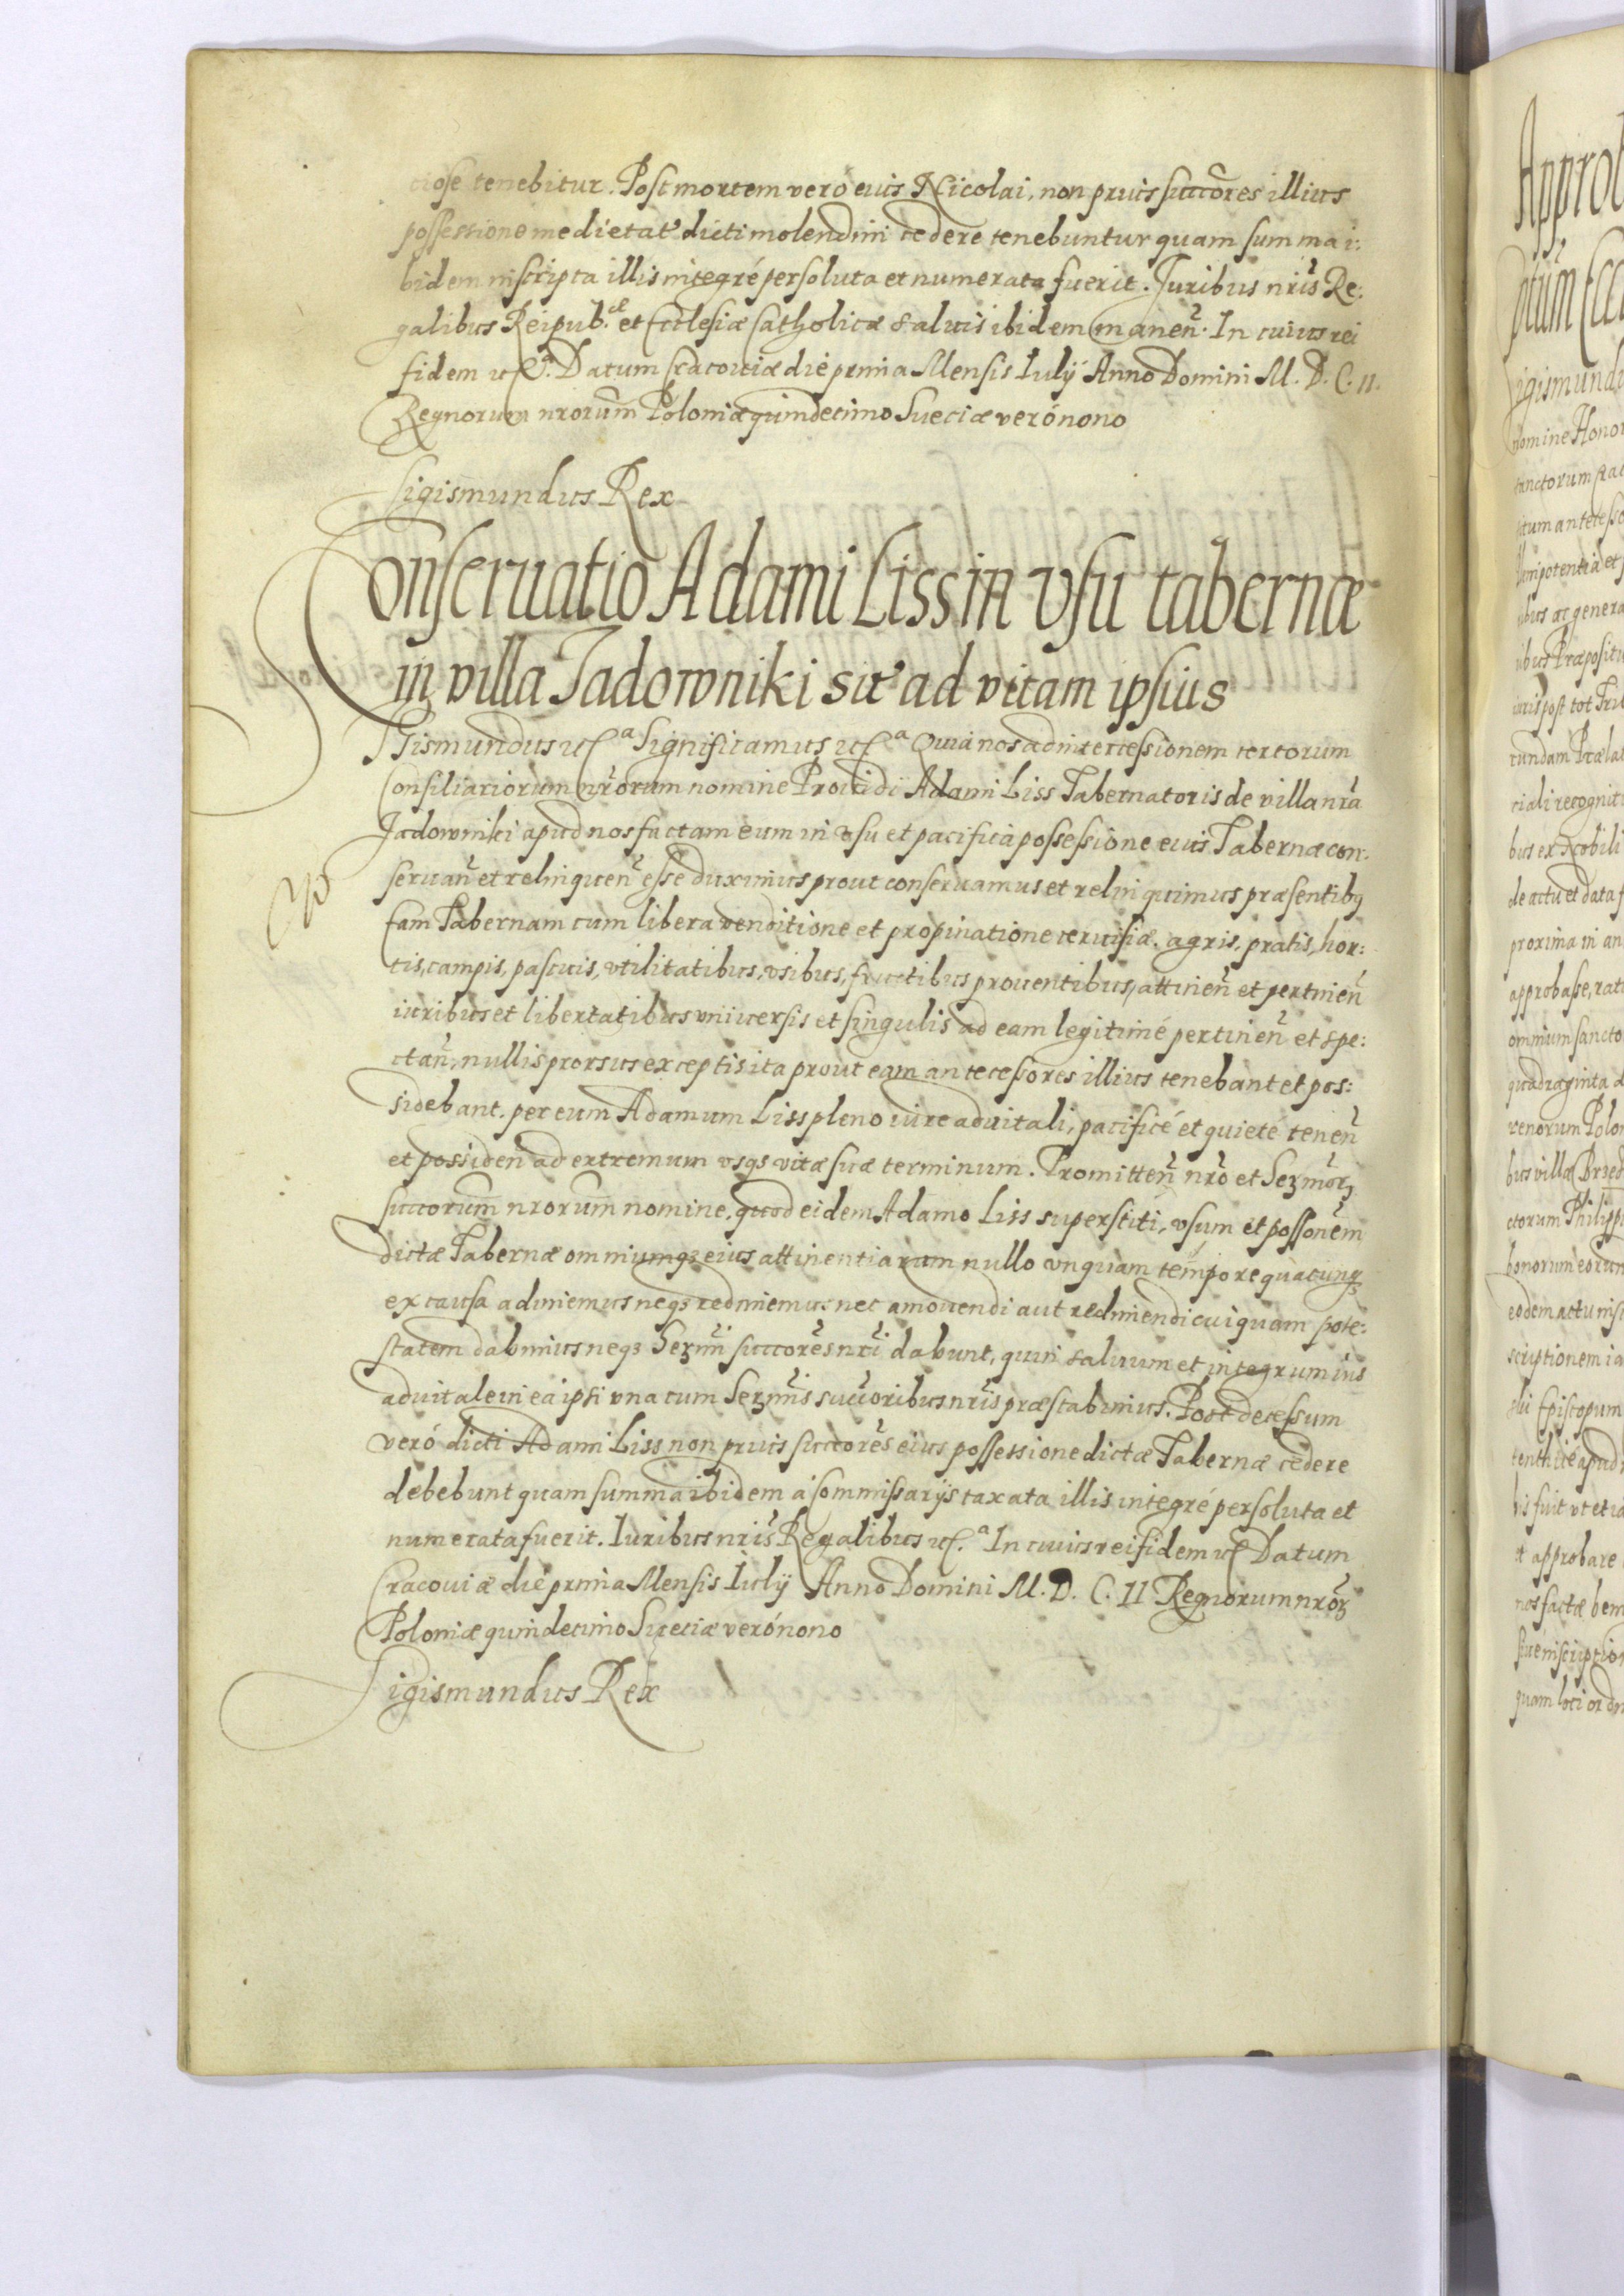 ciose tenebitur. Post mortem vero eius Nicolai, non prius succores illius
possessione medietat dicti molendini cedere tenebuntur quam summa i:
bidem inscripta illis integré persoluta et numerata fuerit. Juribus nris Re:
galibus Reipub.cæ et Ecclesiæ Catholicæ saluis ibidem manen. In cuius rei
fidem etc.a Datum Cracouiæ die prima Mensis Iulÿ Anno Domini M. D. C. II.
Regnorum nrorum Poloniæ quindecimo Sueciæ veró nono
Sigismundus Rex
Conseruatio Adami Liss in vsu tabernæ
in villa Jadowniki sit ad vitam ipsius
Sigismundus etc.a Significamus etc.a Quia nos ad intercessionem certorum
Consiliariorum nrorum nomine Prouidi Adami Liss Tabernatoris de villa nra
Jadowniki apud nos factam eum in vsu et pacifica possessione eius Tabernæ con:
seruan et relinquen esse duximus prout conseruamus et relinquimus præsentibq
Eam Tabernam cum libera venditione et propinatione ceruisiæ. agris, pratis, hor:
tis, campis, pascuis, vtilitatibus, vsibus, fructibus prouentibus, attinen et pertinen
iuribus et libertatibus vniuersis et singulis ad eam legitimé pertinen et spe:
ctan, nullis prorsus exceptis ita prout eam antecessores illius tenebant et pos:
sidebant. per eum Adamum Liss pleno iure aduitali, pacificé et quiete tenen
et possiden ad extremum vsqs vitæ suæ terminum. Promitten nro et Sermorz
succorum nrorum nomine, quod eidem Adamo Liss superstiti, vsum et possonem
dictæ Tabernæ omniumqz eius attinentiarum nullo vnquam tempore quacunqz
ex causa adimemus neqz redimemus nec amouendi aut redimendi cuiquam pote:
statem dabimus neqz Sermi succores nri dabunt, quin saluum et integrum ius
aduitale in ea ipsi vna cum Sermis succoribus nris præstabimus. Post decessum
veró dicti Adami Liss non prius succores eius possessione dictæ Tabernæ cedere
debebunt quam summa ibidem á Commissarÿs taxata illis integré persoluta et
numerata fuerit. Iuribus nris Regalibus etc.a In cuius rei fidem etc Datum
Cracouiæ die prima Mensis Iulÿ Anno Domini M. D. C. II Regnorum nrorz
Poloniæ quindecimo Sueciæ veró nono
Sigismundus Rex